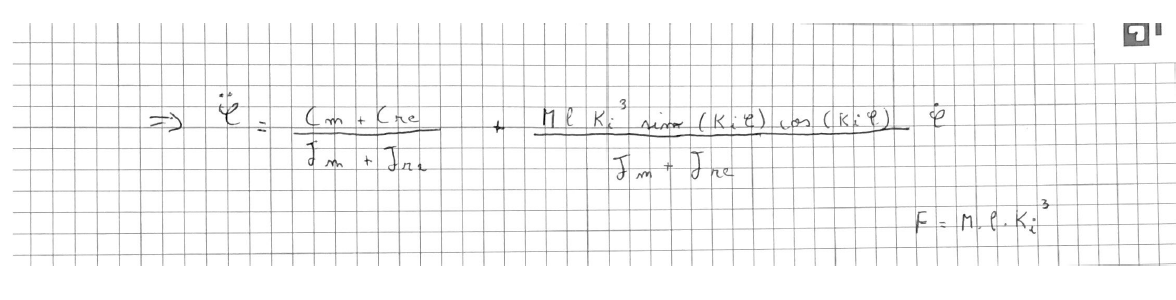 ⇒ φ̈ = (Cm + Cre) / (Jm + Jre) + (M l Ki³ sin (Kiφ) cos (Kiφ)) / (Jm + Jre) φ̇
F = M. l. Ki³